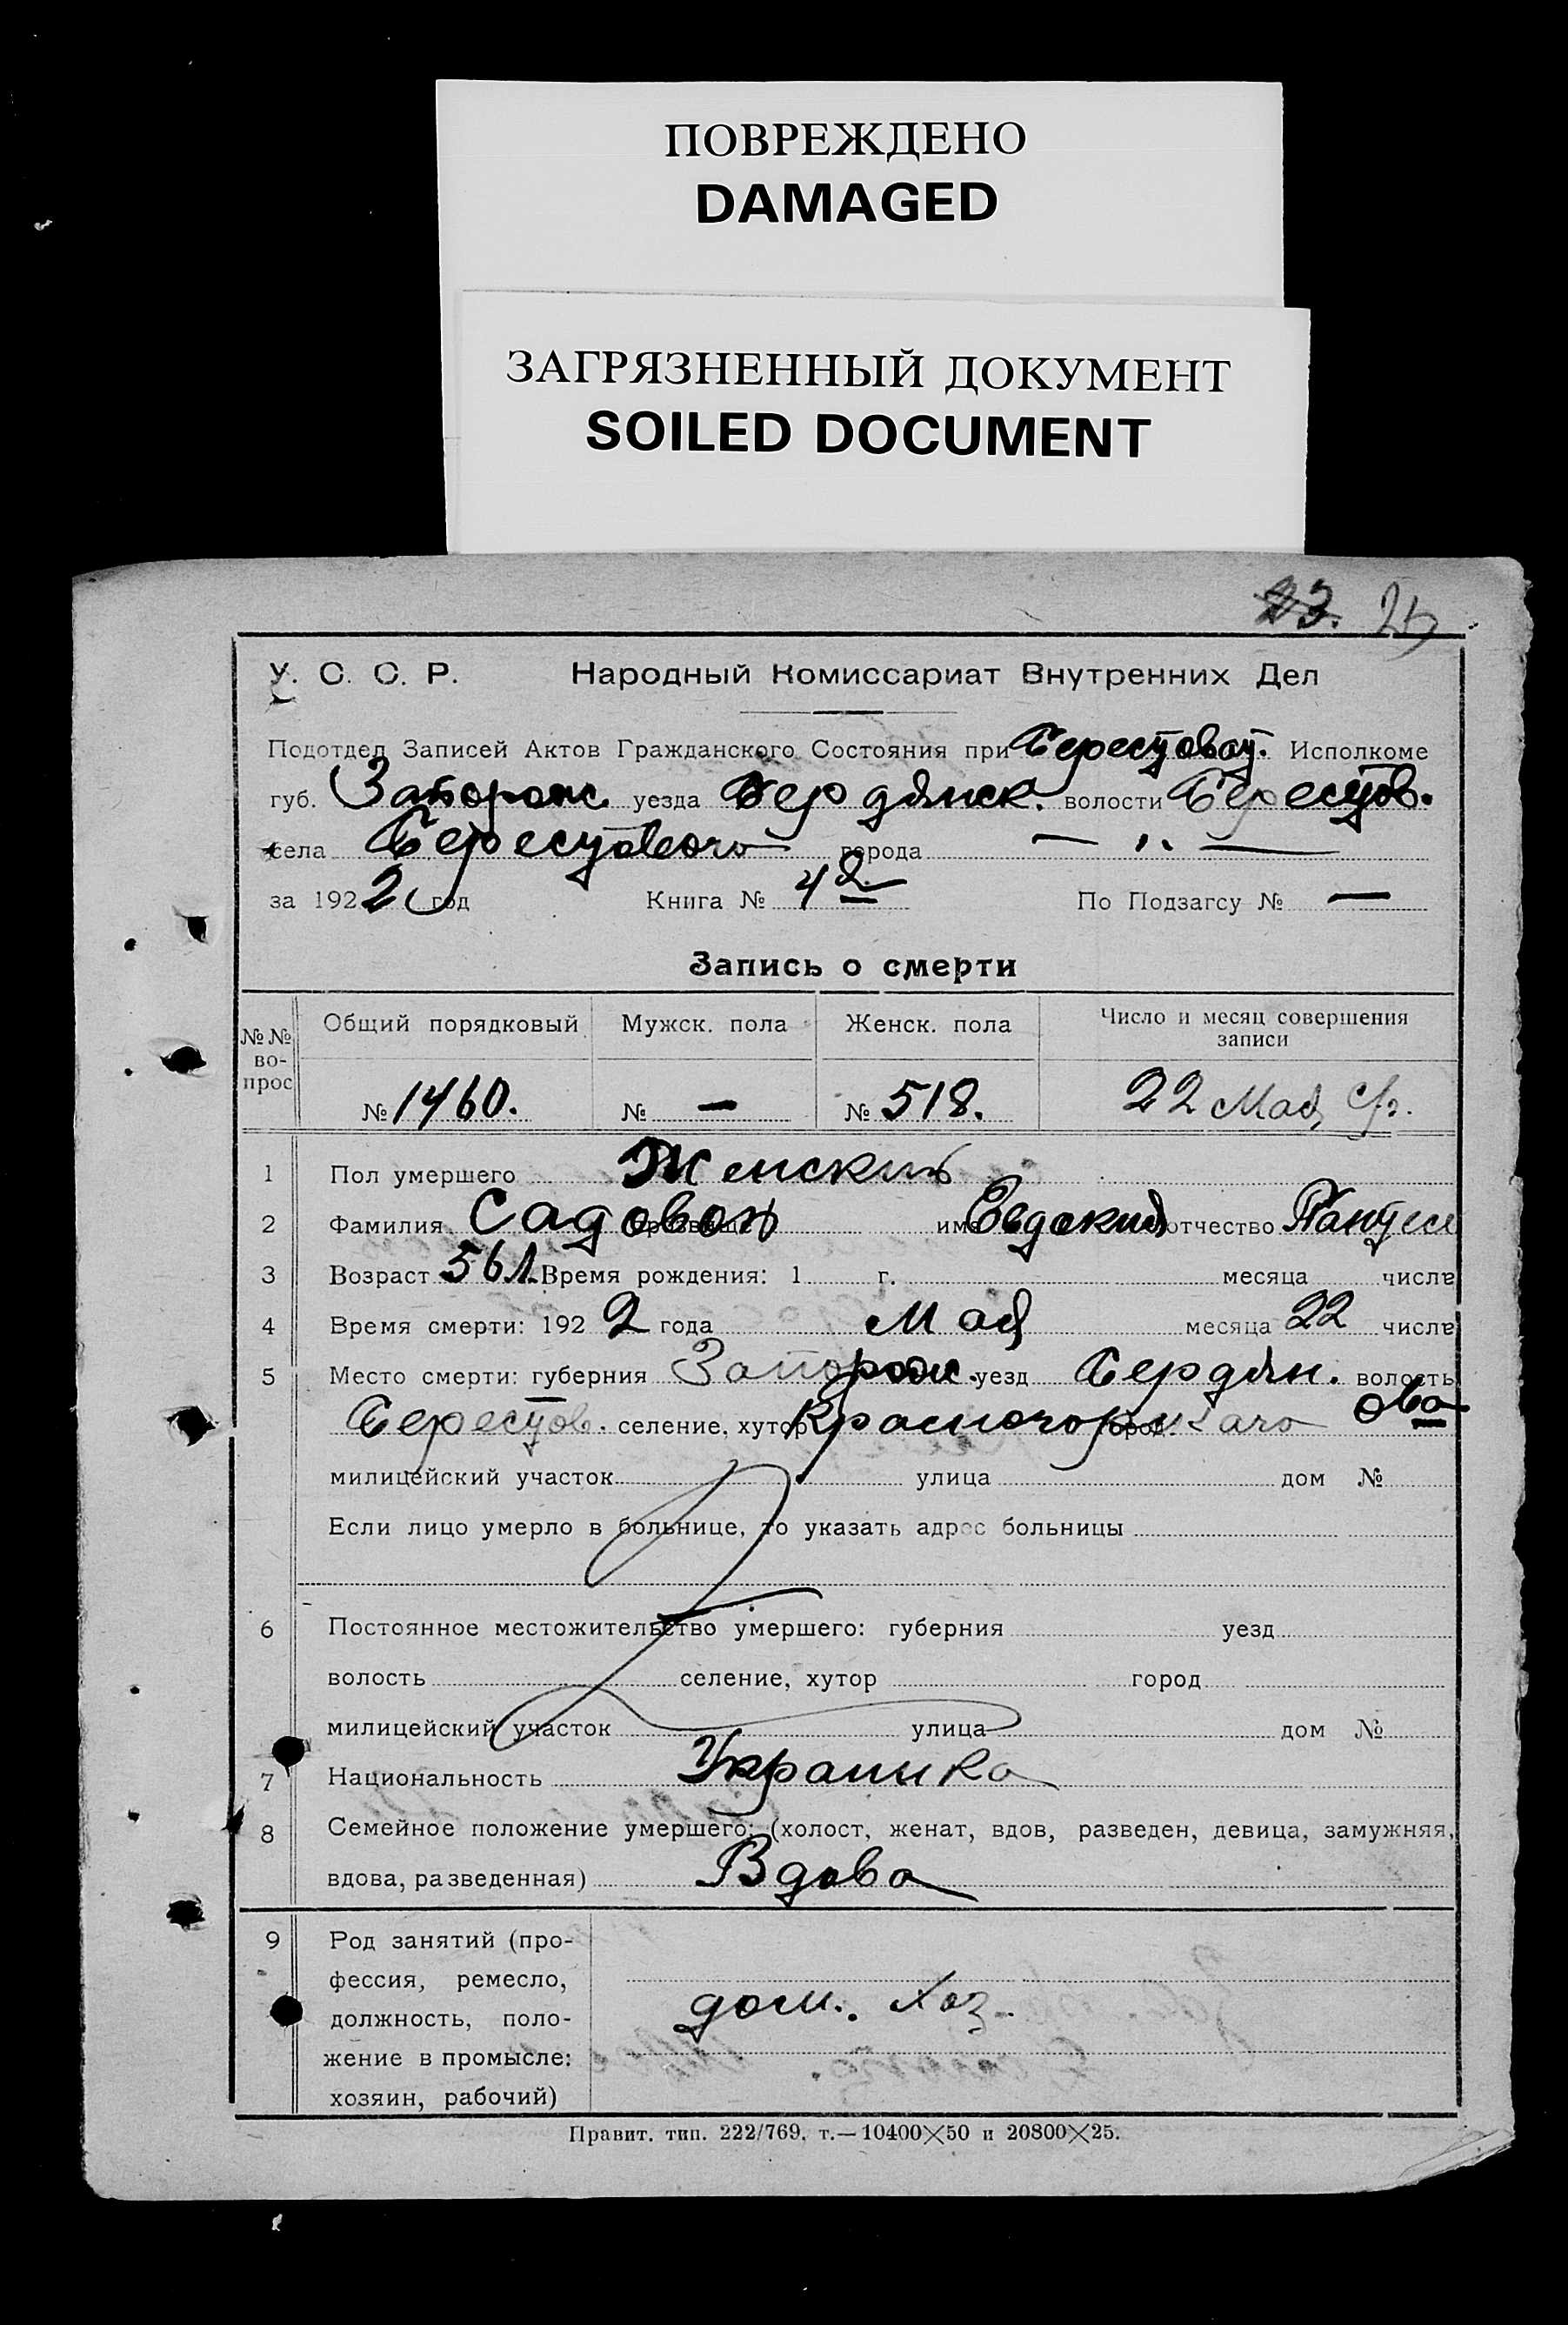 ПОВРЕЖДЕНО
DAMAGED
ЗАГРЯЗНЕННЫЙ ДОКУМЕНТ
SOILED DOCUMENT
23. 25
У. С. С. Р. Народный Комиссариат Внутренних Дел
Подотдел Записей Актов Гражданского Состояния при Берестовой. Исполкоме
губ. Запорож. уезда Бердянск. волости Берестов.
села Берестового города — „ —
за 1922 год Книга № 42 По Подзагсу № —
Запись о смерти
№№ вопрос Общий порядковый Мужск. пола Женск. пола Число и месяц совершения записи
№ 1460. № — № 518. 22 Мая с/г.
1 Пол умершего Женский
2 Фамилия Садовая прозвище имя Евдокия отчество
3 Возраст 56 л. Время рождения: 1 г. месяца числа
4 Время смерти: 1922 года Мая месяца 22 числа
5 Место смерти: губерния Запорож. уезд Бердян. волость
Берестов. селение, хутор город
милицейский участок улица дом №
Если лицо умерло в больнице, то указать адрес больницы
6 Постоянное местожительство умершего: губерния уезд
волость селение, хутор город
милицейский участок улица дом №
7 Национальность Украинка
8 Семейное положение умершего: (холост, женат, вдов, разведен, девица, замужняя,
вдова, разведенная) Вдова
9 Род занятий (про-
фессия, ремесло,
должность, поло- дом. хоз.
жение в промысле:
хозяин, рабочий)
Правит. тип. 222/769, т.—10400×50 и 20800×25.